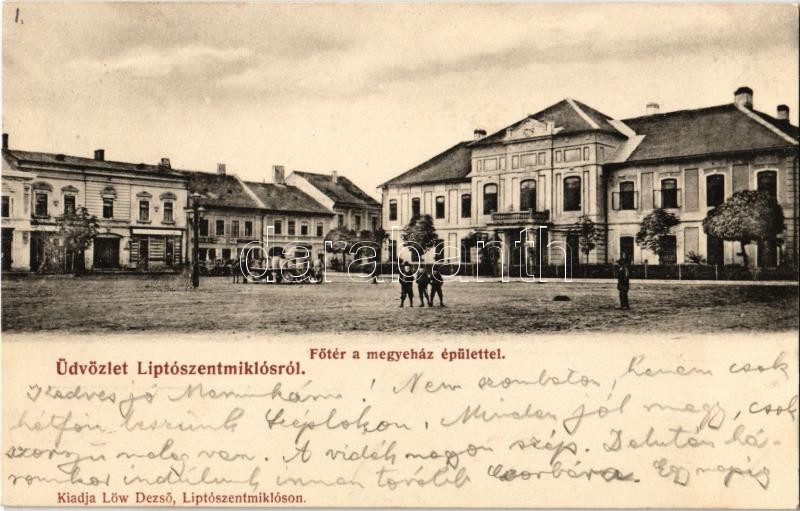 1.
darabanth.com
Főtér a megyeház épülettel.
Üdvözlet Liptószentmiklósról.
Kedves jó Mamikám! Nem szombaton, hanem csak
hétfőn leszünk Széplakon. Minden jól megy, csok
szörnyű meleg van. A vidék nagyon szép. Délután há-
romkor indulunk innen tovább Csorbára. Egy napig
Kiadja Löw Dezső, Liptószentmiklóson.